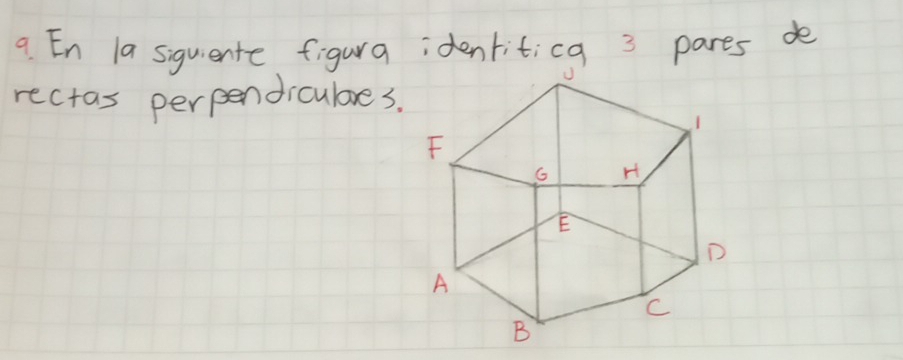 9. En la siguiente figura identifica 3 pares de
rectas perpendiculares.
J
I
F
G H
E
D
A
C
B